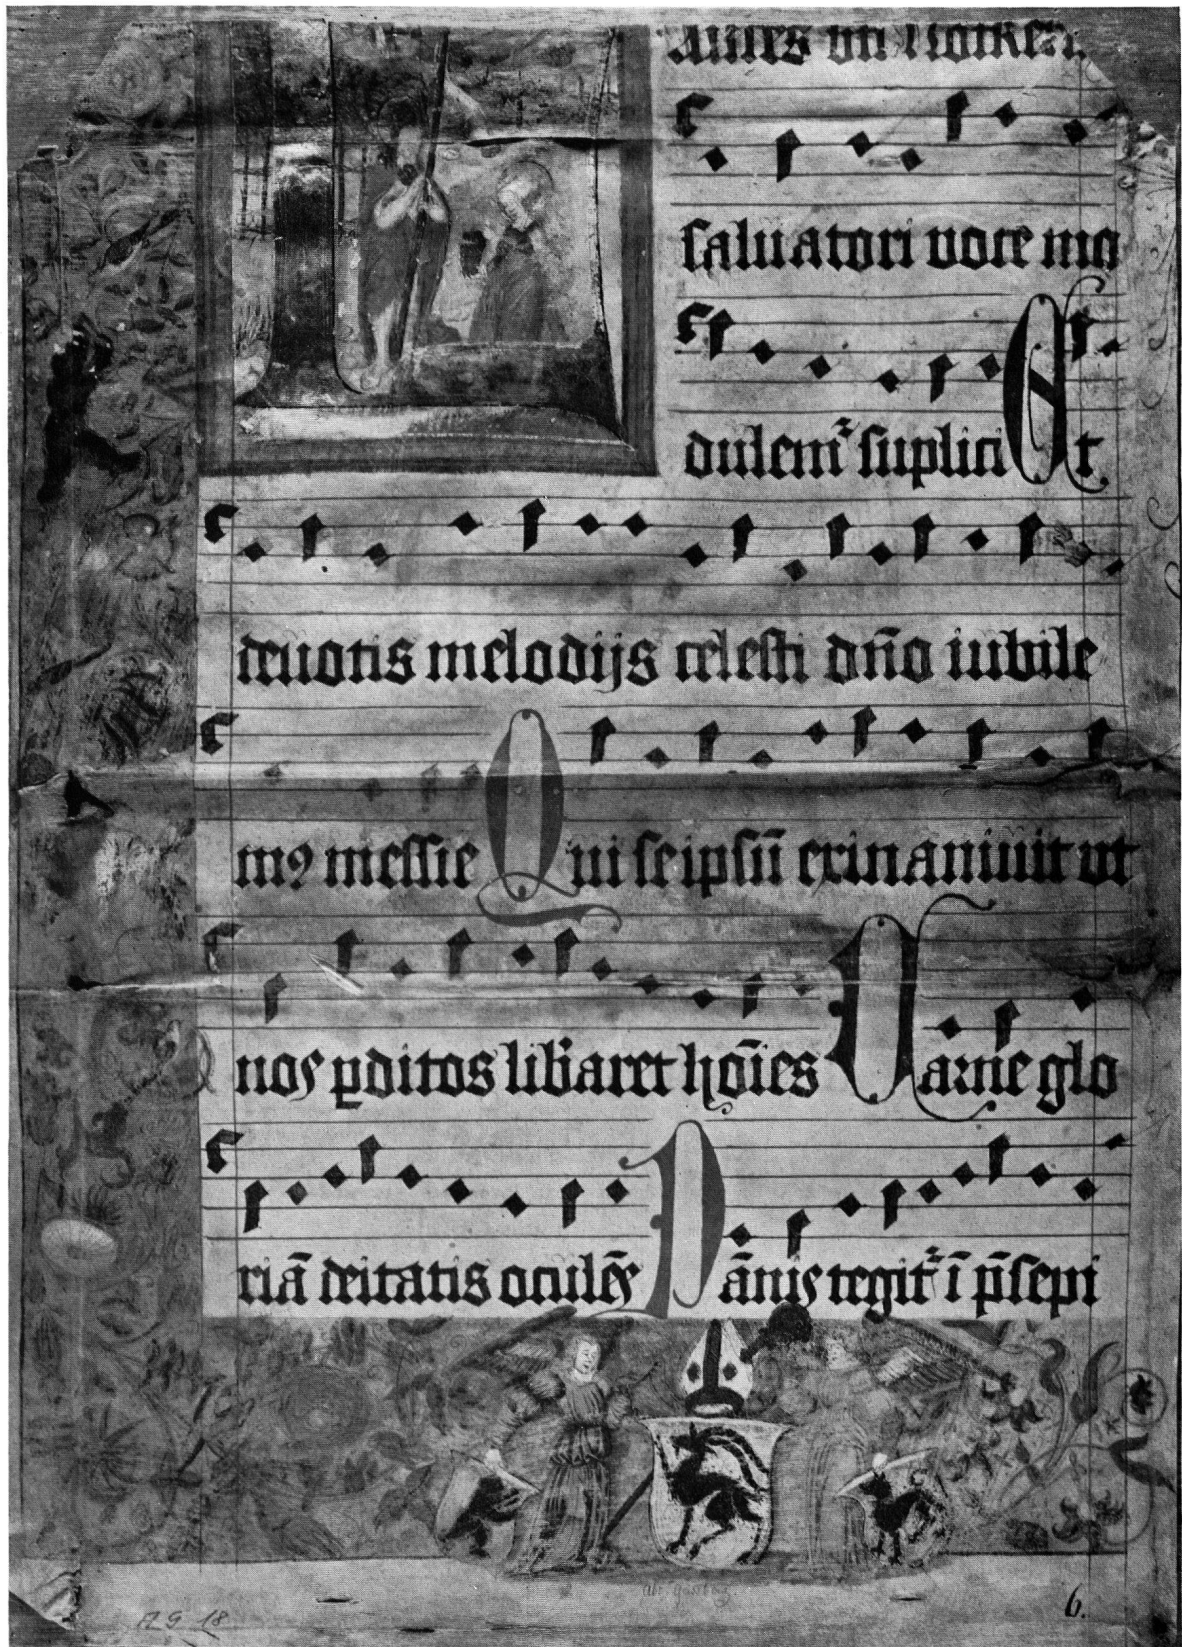 saluatori uoce mo
dulem᷑ suplici Et
deuotis melodijs celesti dn̄o iubile
mꝰ messie Qui seipsū exinaniuit ut
nos ꝑditos lib̄aret hōīes Carne glo
riā deitatis oculēs Pānis tegit᷑ ī p̄sepi
6.